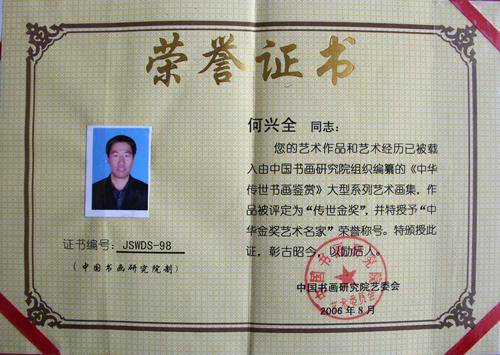 荣誉证书
何兴全 同志：
您的艺术作品和艺术经历已被载
入由中国书画研究院组织编纂的《中华
传世书画鉴赏》大型系列艺术画集，作
品被评定为“传世金奖”，并特授予“中
华金奖艺术名家”荣誉称号。特颁授此
证，彰古昭今，以励后人。
证书编号：JSWDS-98
(中国书画研究院制)
中国书画研究院艺委会
2006年8月
中国书画研究院
艺术委员会